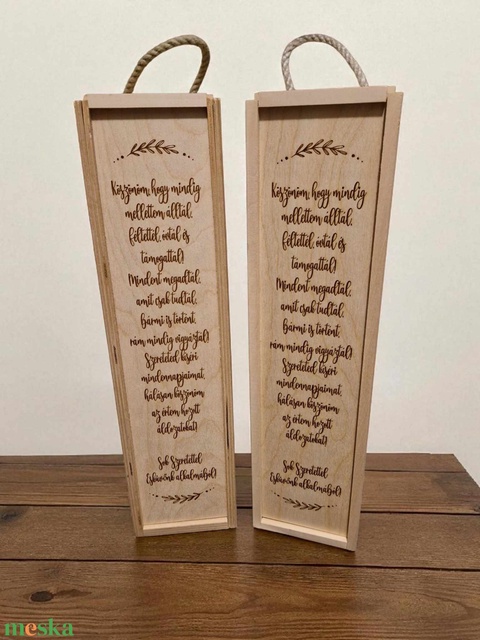 Köszönöm, hogy mindig
mellettem álltál,
féltettél, óvtál és
támogattál!
Mindent megadtál,
amit csak tudtál,
bármi is történt,
rám mindig vigyáztál!
Szereteted kíséri
mindennapjaimat,
hálásan köszönöm
az értem hozott
áldozatokat!
Sok Szeretettel
Esküvőnk alkalmából!
Köszönöm, hogy mindig
mellettem álltál,
féltettél, óvtál és
támogattál!
Mindent megadtál,
amit csak tudtál,
bármi is történt,
rám mindig vigyáztál!
Szereteted kíséri
mindennapjaimat,
hálásan köszönöm
az értem hozott
áldozatokat!
Sok Szeretettel
Esküvőnk alkalmából!
meska